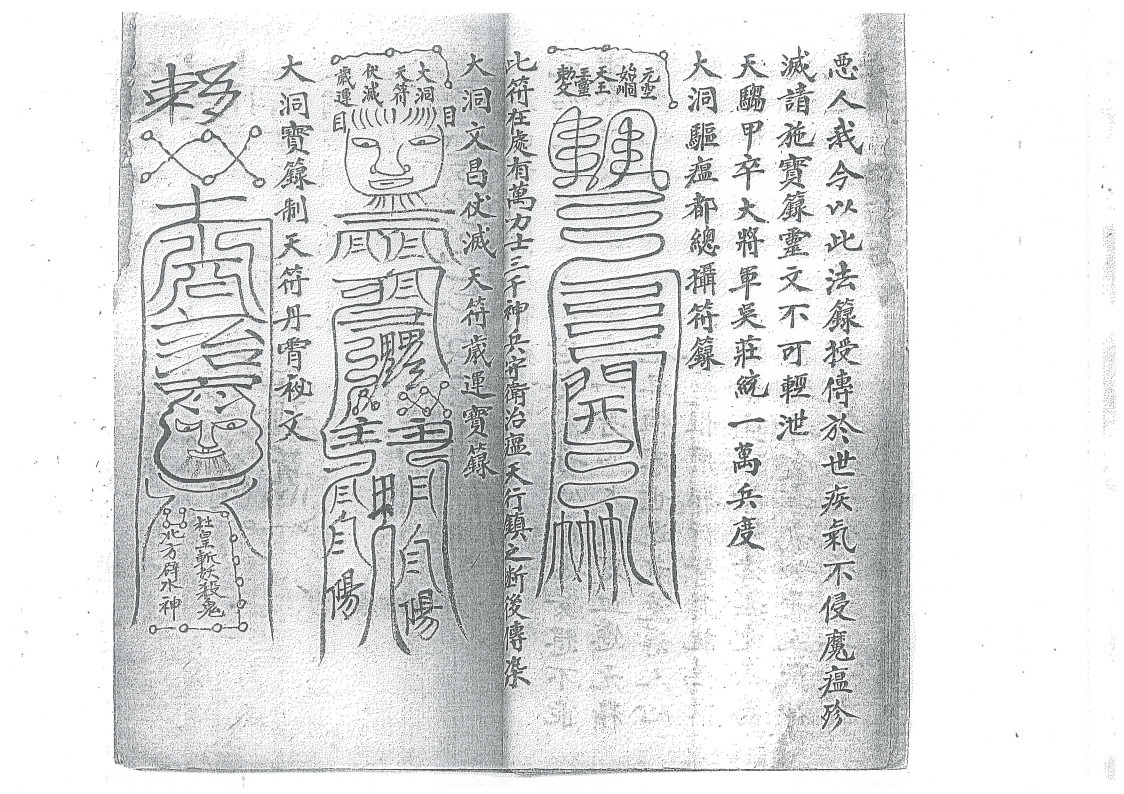 惡人我今以此法籙授傳於世疾氣不侵魔瘟殄
滅請施寶籙靈文不可輕泄
天騶甲卒大將軍吳莊統一萬兵度
大洞驅瘟都總攝符籙
元
始
天王
敕
開
此符在處有萬力士三千神兵守衛治瘟天行鎮之斷後傳染
大洞文昌伏滅天符歲運寶籙
大洞
天符
伏滅
歲運
目
目
明
陽
陽
大洞寶籙制天符丹霄祕文
敕
治
社皇斬妖殺鬼
北方辟水神